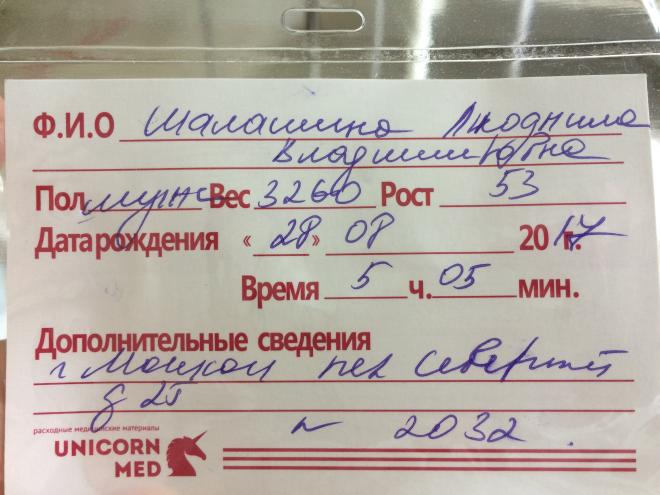 Ф.И.О Шалашина Людмила
Владимировна
Пол муж Вес 3260 Рост 53
Дата рождения «28» 08 2017г.
Время 5 ч. 05 мин.
Дополнительные сведения
г
д 25
N 2032.
расходные медицинские материалы
UNICORN
MED